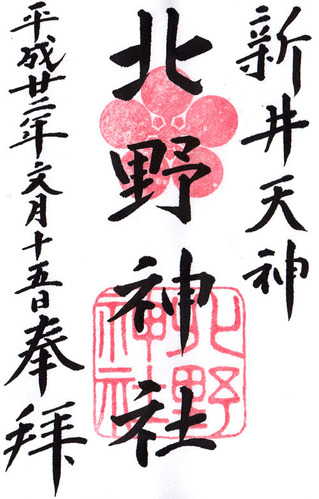 新井天神
北野神社
北野神社
平成廿二年文月十五日奉拝